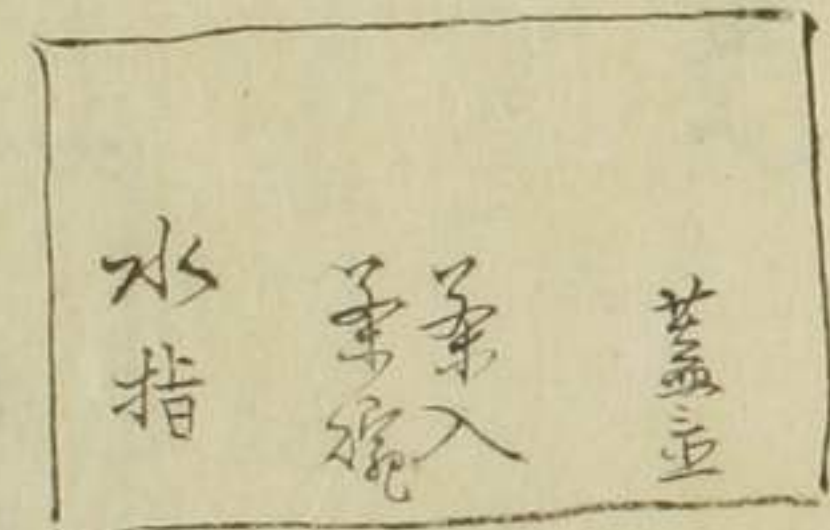 蓋置
茶入
茶碗
水指